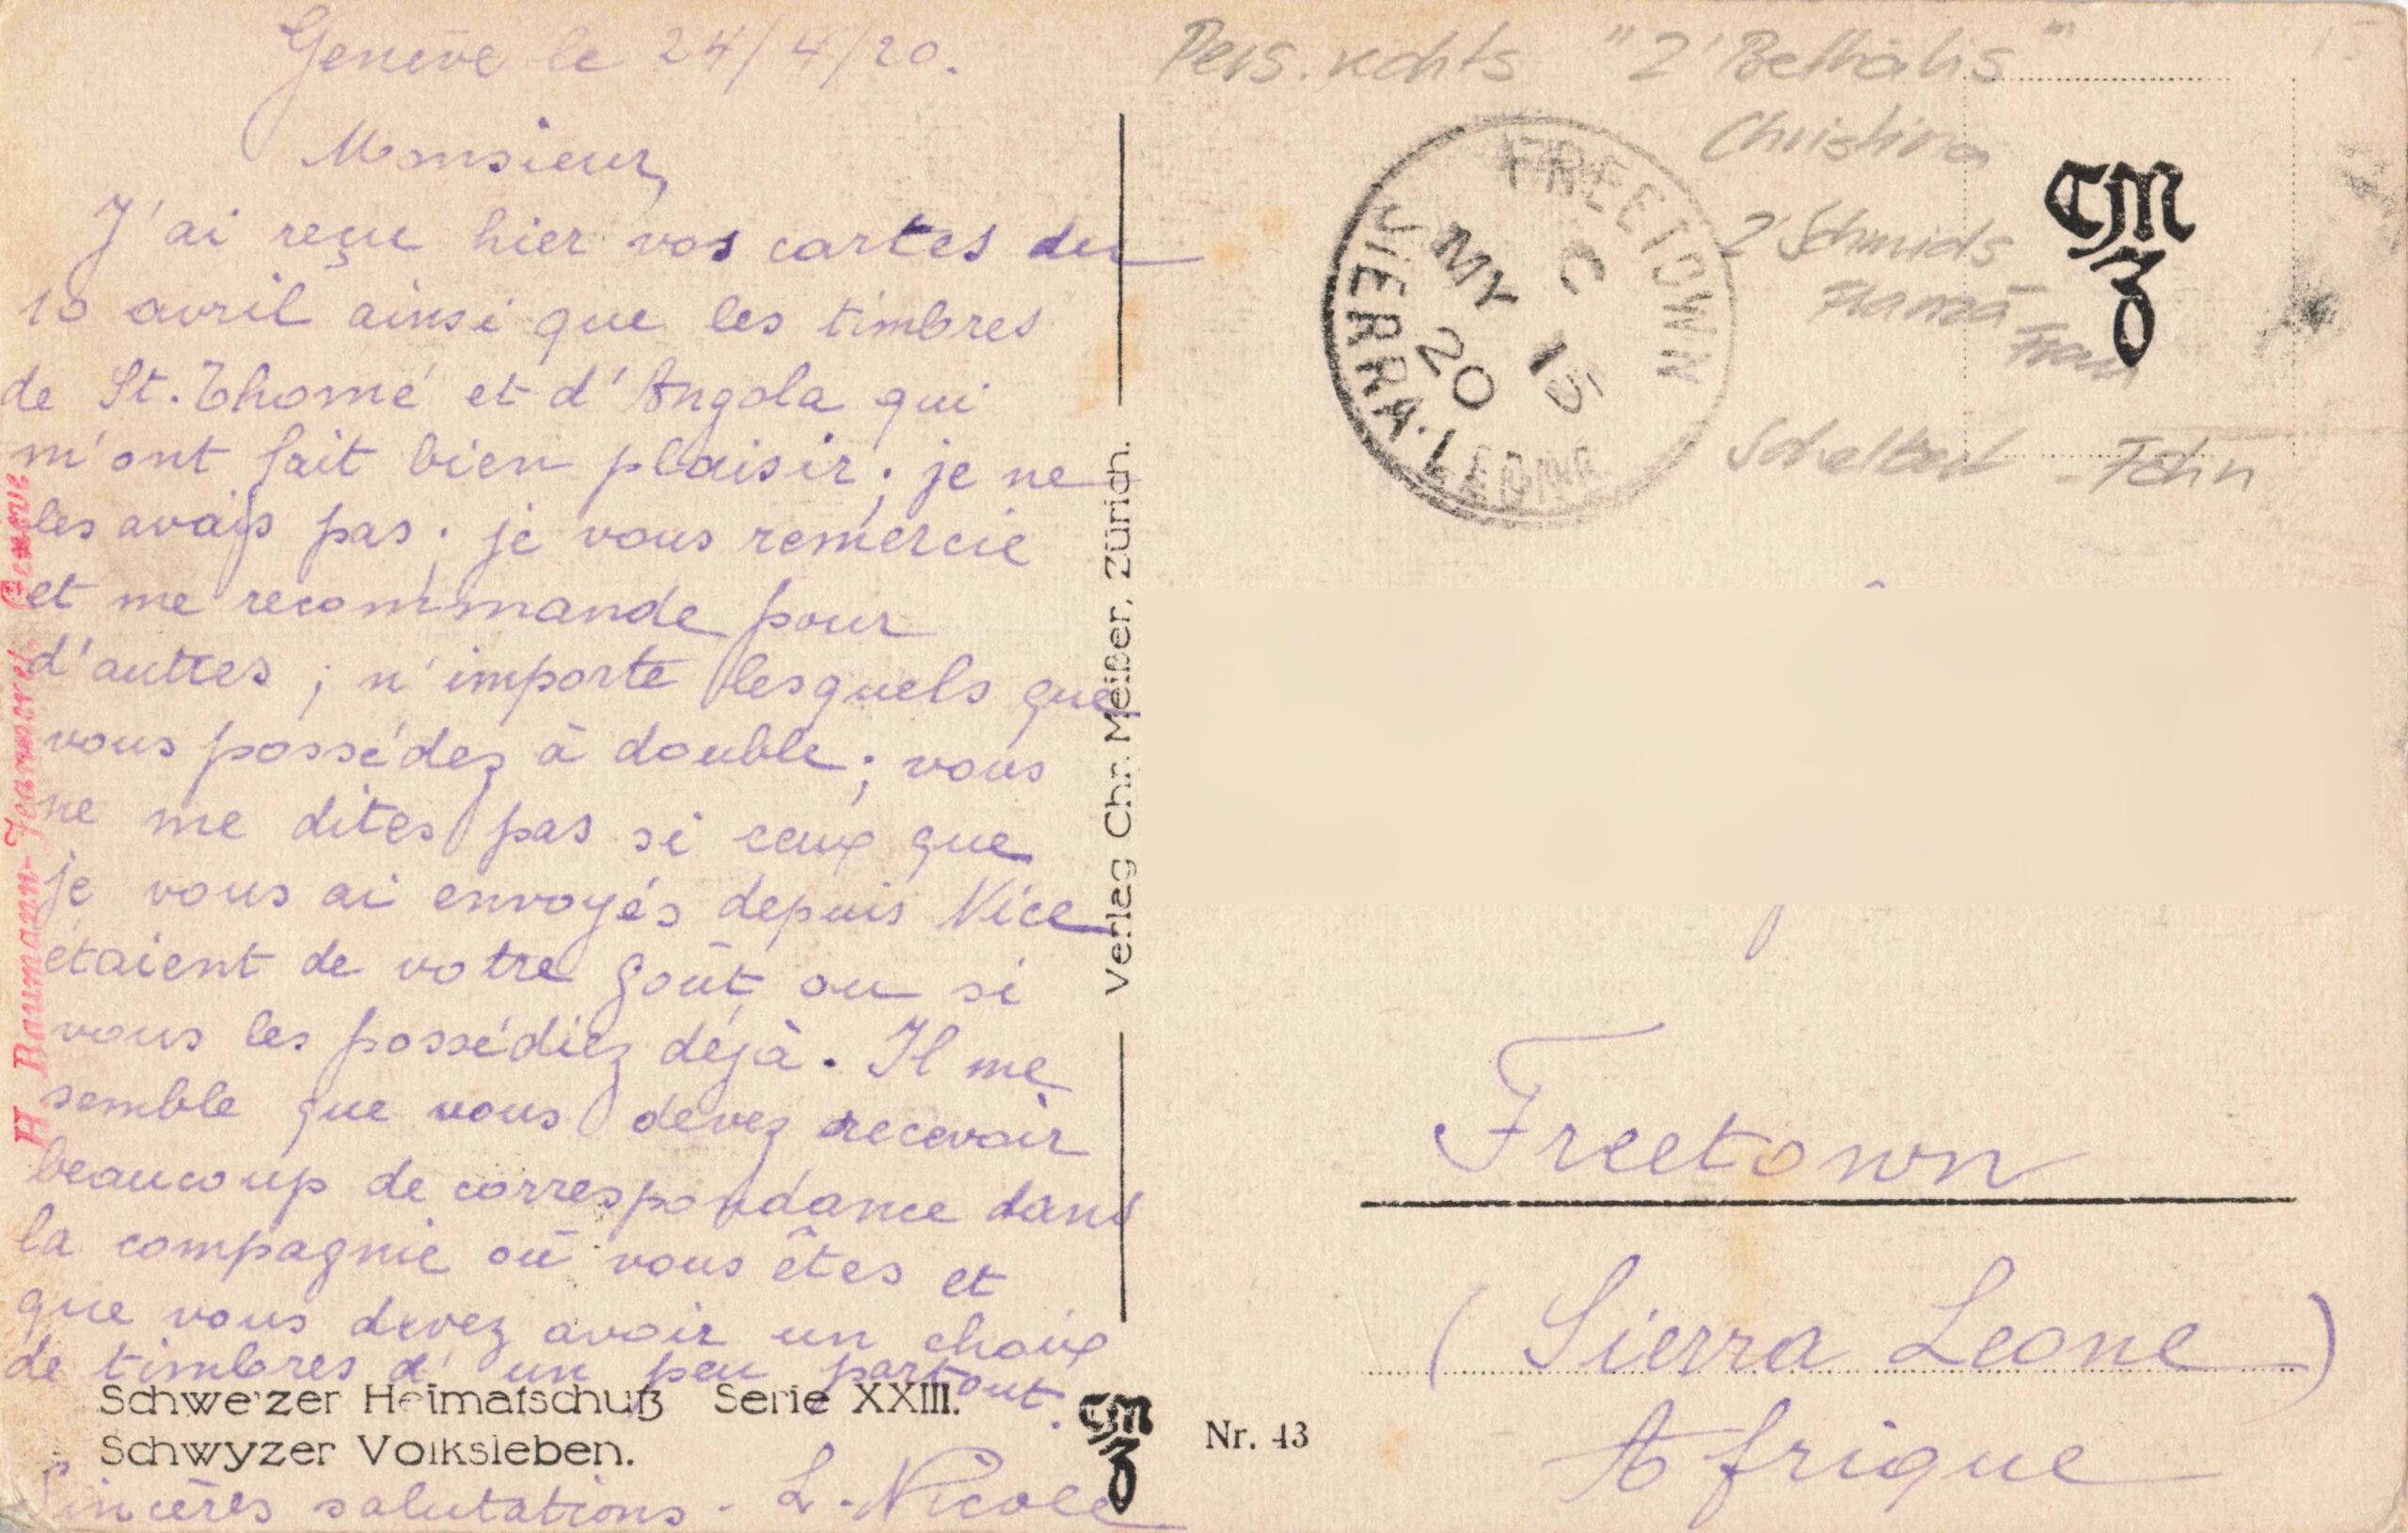 Genève le 24/4/20.
Monsieur,
J'ai reçu hier vos cartes du
10 avril ainsi que les timbres
de St. Thomé et d'Angola qui
m'ont fait bien plaisir; je ne
les avais pas; je vous remercie
et me recommande pour
d'autres; n'importe lesquels que
vous possédez à double; vous
ne me dites pas si ceux que
je vous ai envoyés depuis Nice
étaient de votre goût ou si
vous les possédiez déjà. Il me
semble que vous devez recevoir
beaucoup de correspondance dans
la compagnie où vous êtes et
que vous devez avoir un choix
de timbres d'un peu partout.
Schweizer Heimatschutz Serie XXIII.
Schwyzer Volksleben.
Sincères salutations - L. Nicole
H Baumann-Jeanneret Genève
Verlag Chr. Meißer, Zürich.
Pers. rechts "2'Bethälis"
Christina
2'Schmids
Frau
Schelbert - Fön
CMZ
FREETOWN
C
MY 15
20
SIERRA·LEONE
Freetown
(Sierra Leone)
Afrique
CMZ
Nr. 43